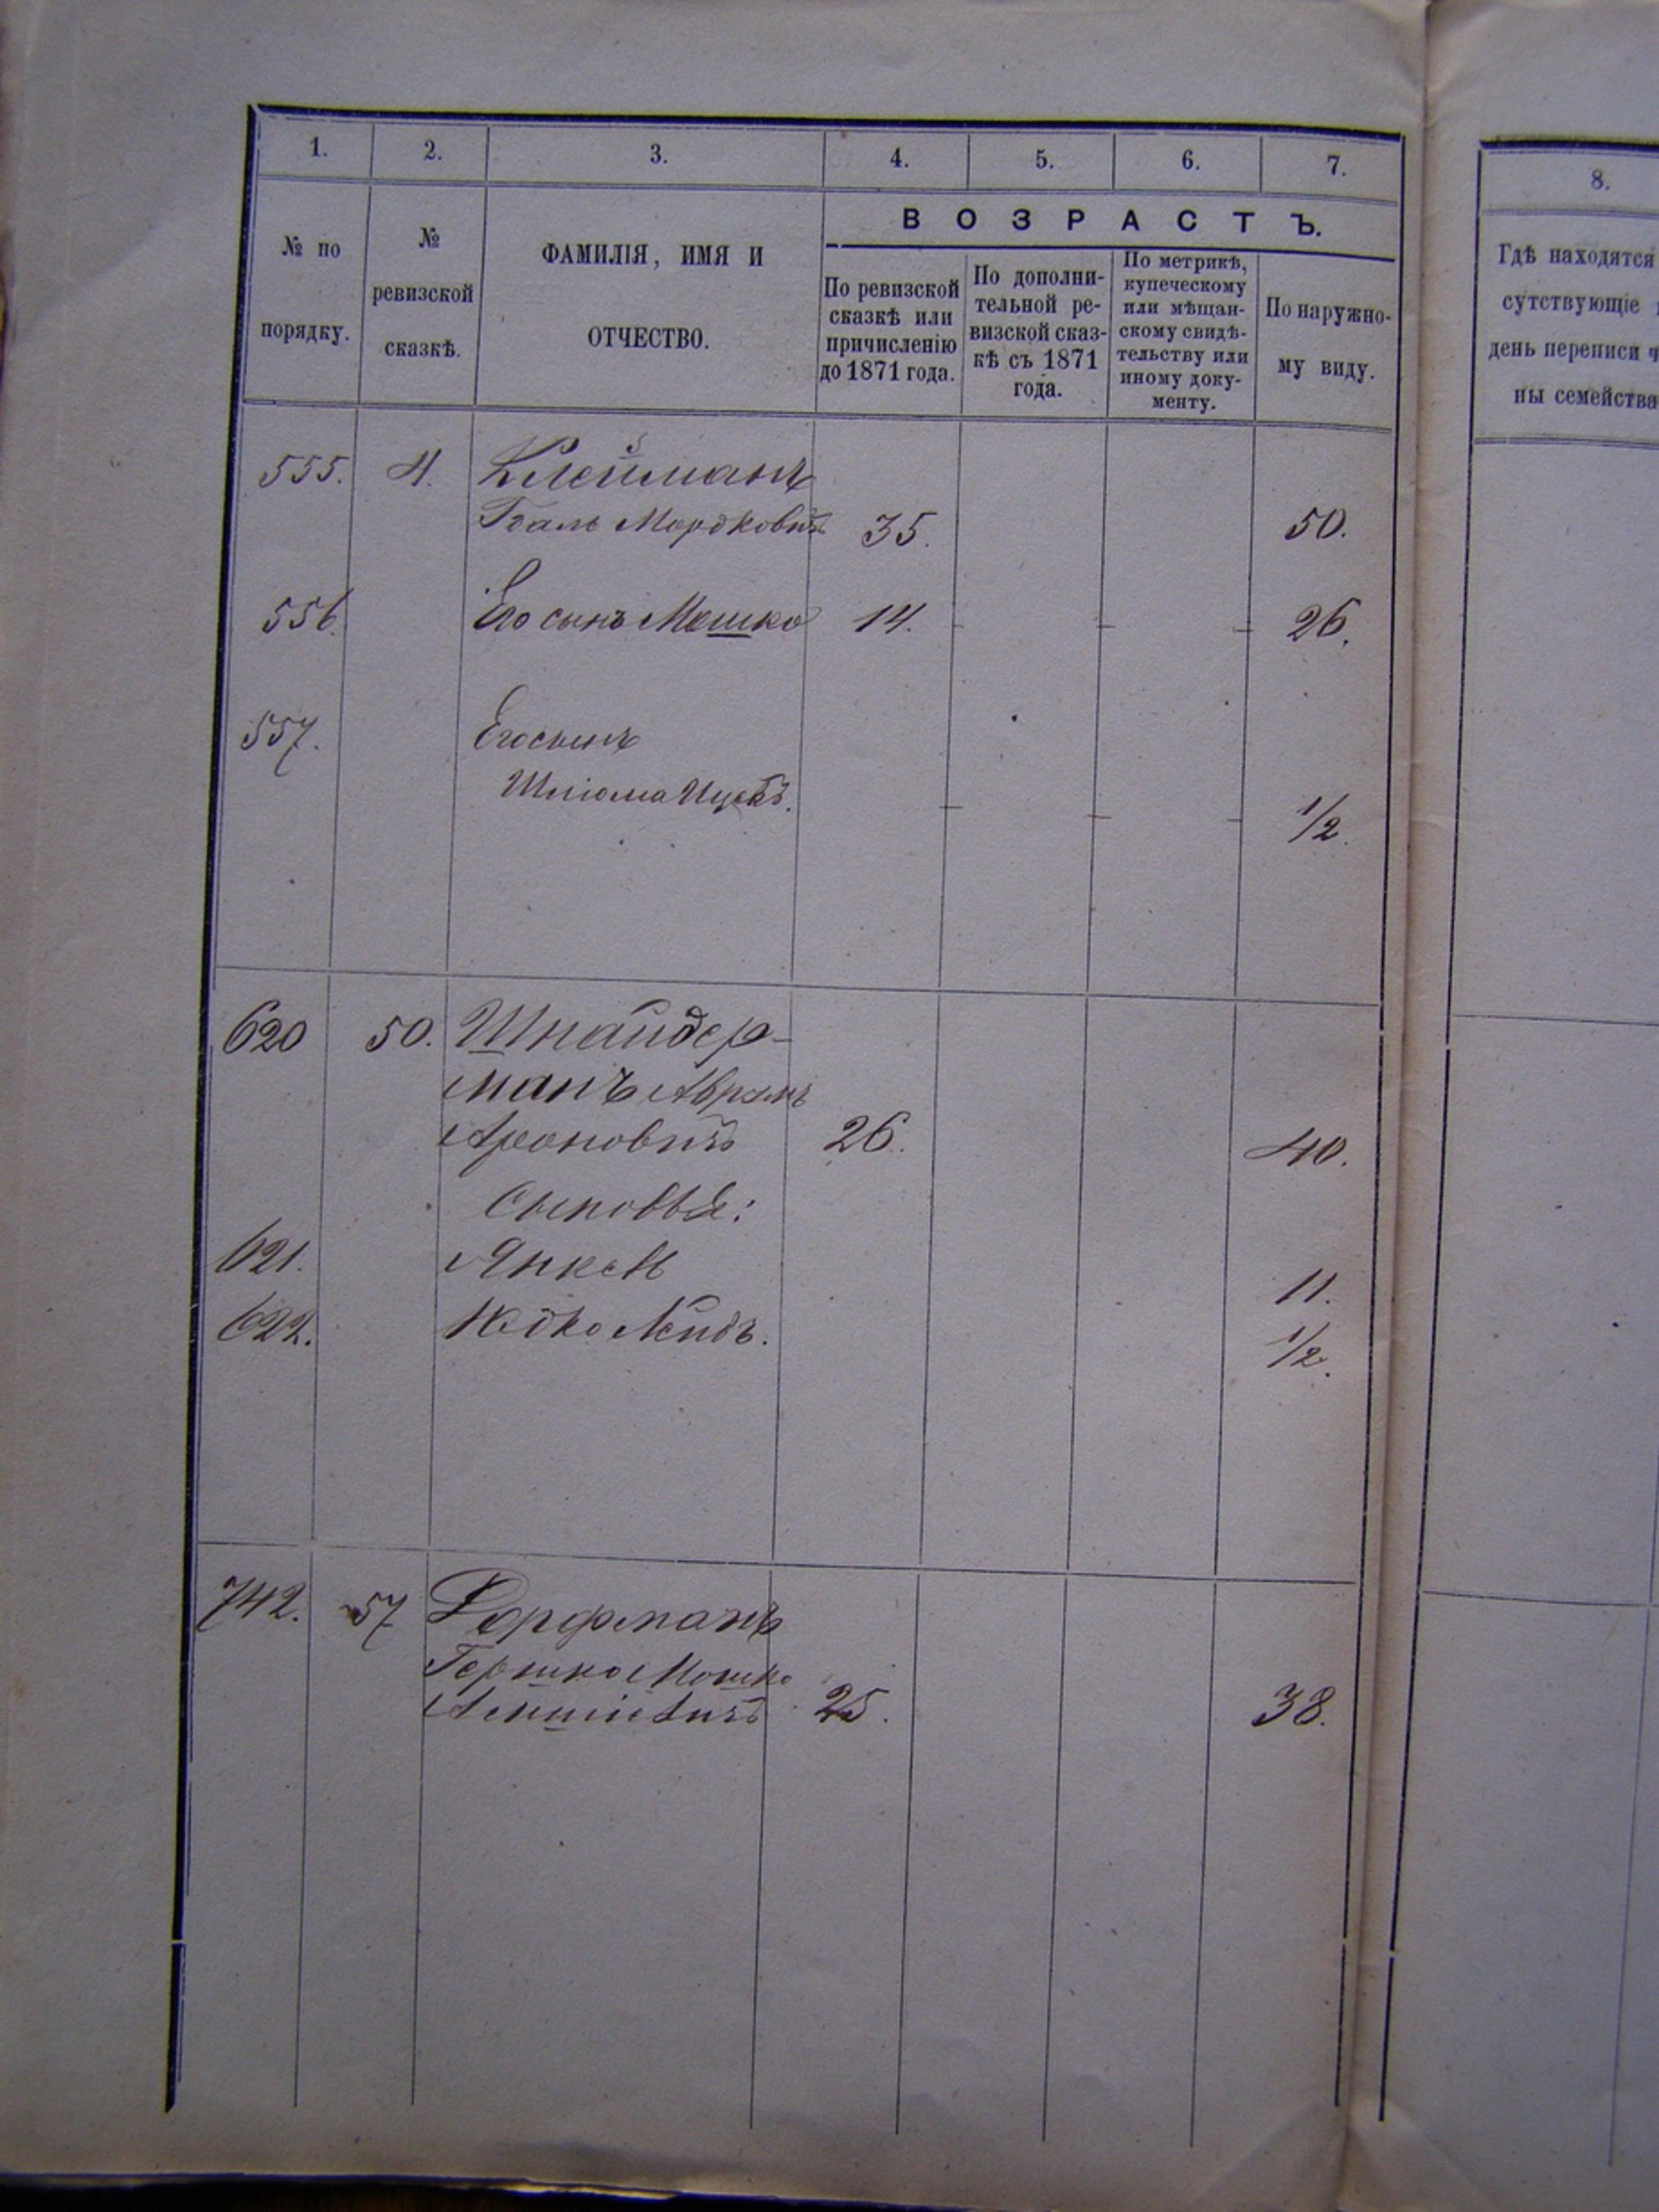 1. 2. 3. 4. 5. 6. 7.
8.
№ по порядку.
№ ревизской сказкѣ.
ФАМИЛІЯ, ИМЯ И
ОТЧЕСТВО.
ВОЗРАСТЪ.
По ревизской
сказкѣ или
причисленію
до 1871 года.
По дополни-
тельной ре-
визской сказ-
кѣ съ 1871
года.
По метрикѣ,
купеческому
или мѣщан-
скому свидѣ-
тельству или
иному доку-
менту.
По наружно-
му виду.
Гдѣ находятся
сутствующіе
день переписи
ны семейства
555. 4. Клейманъ
Мордковичъ 35. 50.
556. Его сынъ Мошко 14. - - - 26.
557. Его сынъ
Шліома Ицекъ. - - - 1/2.
620 50. Шнайдер-
манъ Аврамъ
Ароновичъ 26. 40.
Сыновья:
621. Янкель 11.
622. Юдко Лейбъ. 1/2.
742. 57 Дорфманъ
Гершко Мошко
25. 38.